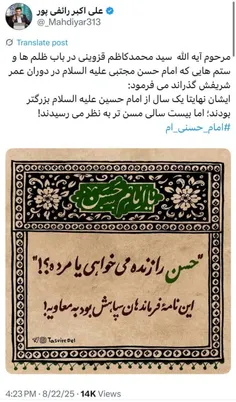 علی اکبر رائفی پور
@_Mahdiyar313
Translate post
مرحوم آیه الله سید محمدکاظم قزوینی در باب ظلم ها و
ستم هایی که امام حسن مجتبی علیه السلام در دوران عمر
شریفش گذراند می فرمود:
ایشان نهایتا یک سال از امام حسین علیه السلام بزرگتر
بودند؛ اما بیست سالی مسن تر به نظر می رسیدند!
#امام_حسنی_ام
یا امام حسن
"حسن را زنده می خواهی یا مرده؟!"
این نامهٔ فرماندهان سپاهش بود به معاویه!
TasvireDel
4:23 PM · 8/22/25 · 14K Views